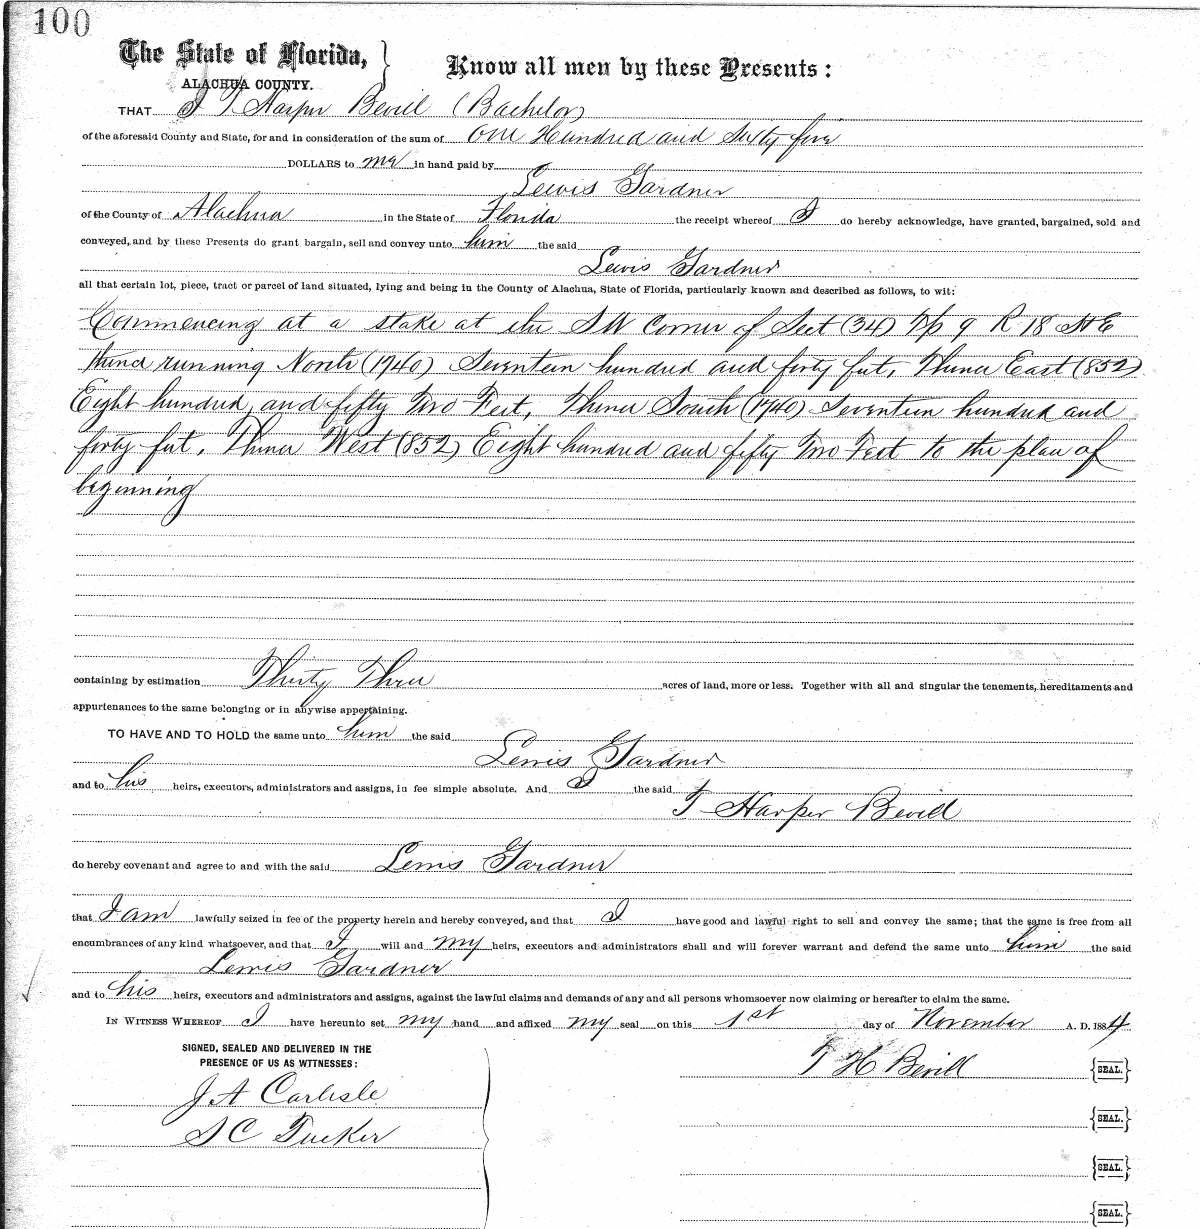 100
The State of Florida, } Know all men by these Presents:
ALACHUA COUNTY.
THAT I T Harper Bevill (Bachelor)
of the aforesaid County and State, for and in consideration of the sum of One Hundred and Sixty five
DOLLARS to me in hand paid by
Lewis Gardner
of the County of Alachua in the State of Florida the receipt whereof I do hereby acknowledge, have granted, bargained, sold and
conveyed, and by these Presents do grant bargain, sell and convey unto him the said
Lewis Gardner
all that certain lot, piece, tract or parcel of land situated, lying and being in the County of Alachua, State of Florida, particularly known and described as follows, to wit:
Commencing at a stake at the SW Corner of Sect (34) Tp 9 R 18 S & E
thence running North (1740) Seventeen hundred and forty feet, Thence East (852)
Eight hundred and fifty Two Feet, Thence South (1740) Seventeen hundred and
forty feet, Thence West (852) Eight hundred and fifty Two Feet to the place of
beginning
containing by estimation Thirty Three acres of land, more or less. Together with all and singular the tenements, hereditaments and
appurtenances to the same belonging or in anywise appertaining.
TO HAVE AND TO HOLD the same unto him the said
Lewis Gardner
and to his heirs, executors, administrators and assigns, in fee simple absolute. And I the said
T Harper Bevill
do hereby covenant and agree to and with the said Lewis Gardner
that I am lawfully seized in fee of the property herein and hereby conveyed, and that I have good and lawful right to sell and convey the same; that the same is free from all
encumbrances of any kind whatsoever, and that I will and my heirs, executors and administrators shall and will forever warrant and defend the same unto him the said
Lewis Gardner
and to his heirs, executors and administrators and assigns, against the lawful claims and demands of any and all persons whomsoever now claiming or hereafter to claim the same.
IN WITNESS WHEREOF I have hereunto set my hand and affixed my seal on this 1st day of November A. D. 1884
SIGNED, SEALED AND DELIVERED IN THE
PRESENCE OF US AS WITNESSES:
T H Bevill {SEAL.}
J A Carlisle
{SEAL.}
S C Tucker
{SEAL.}
{SEAL.}